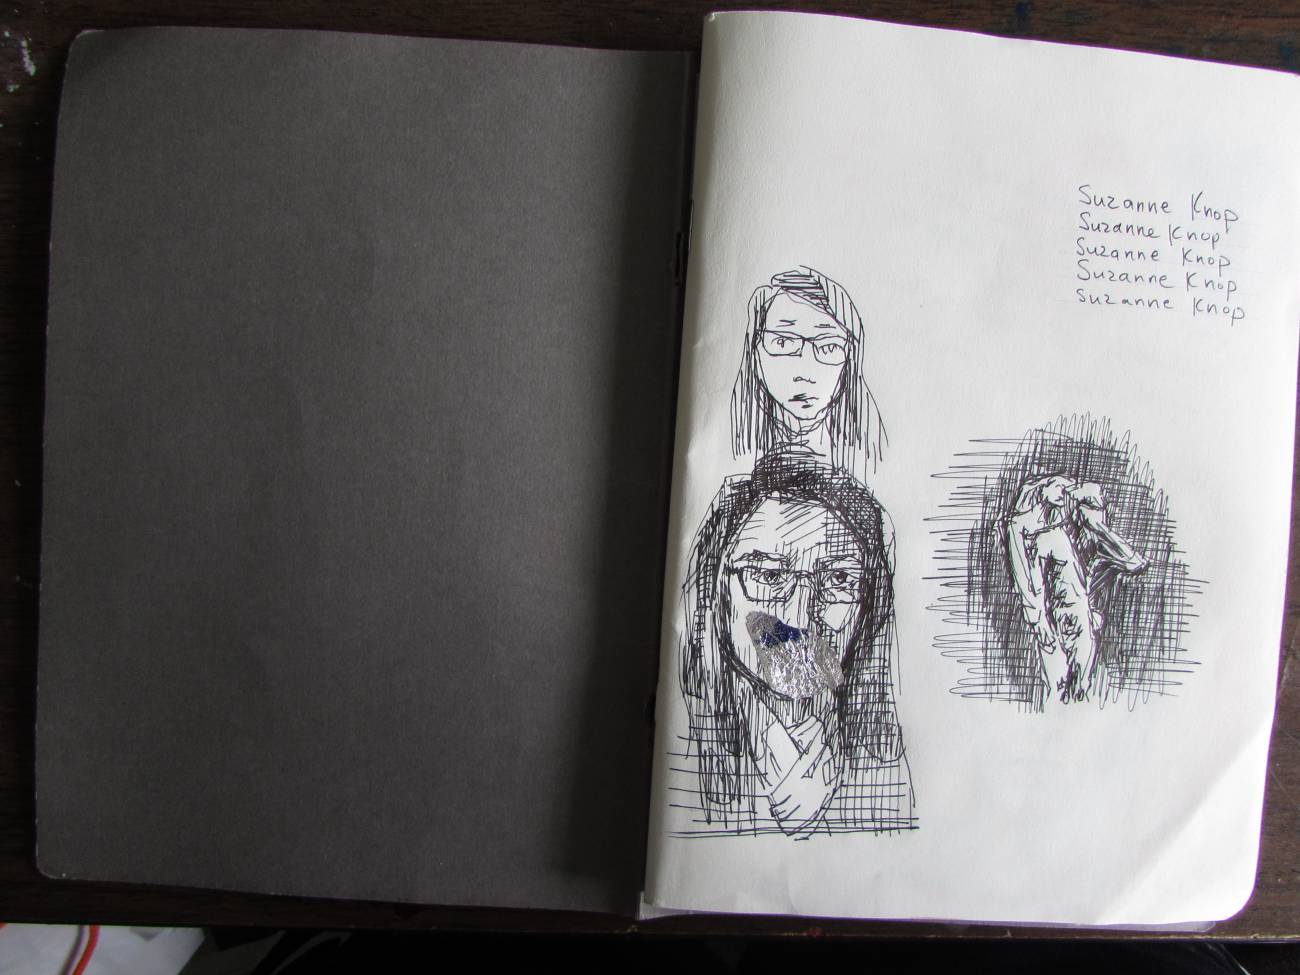 Suzanne Knop
Suzanne Knop
Suzanne Knop
Suzanne Knop
Suzanne Knop